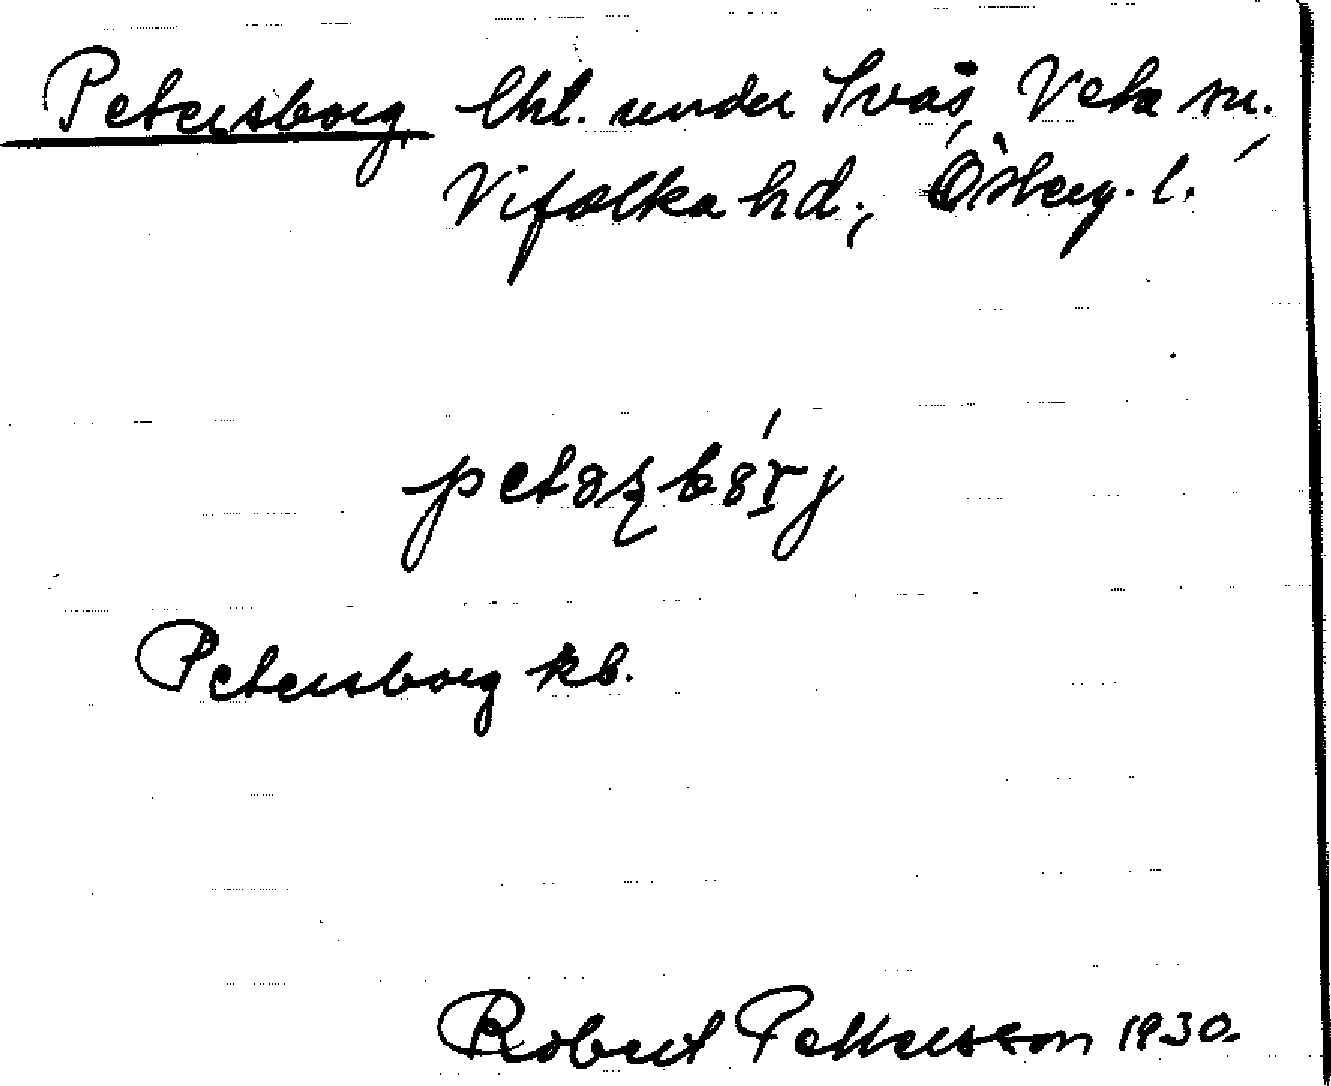 Petersborg lht. under Svås, Veta sn.,
Vifolka hd., Österg. l.
petəʂbórj
Petersborg kb.
Robert Pettersson 1930.